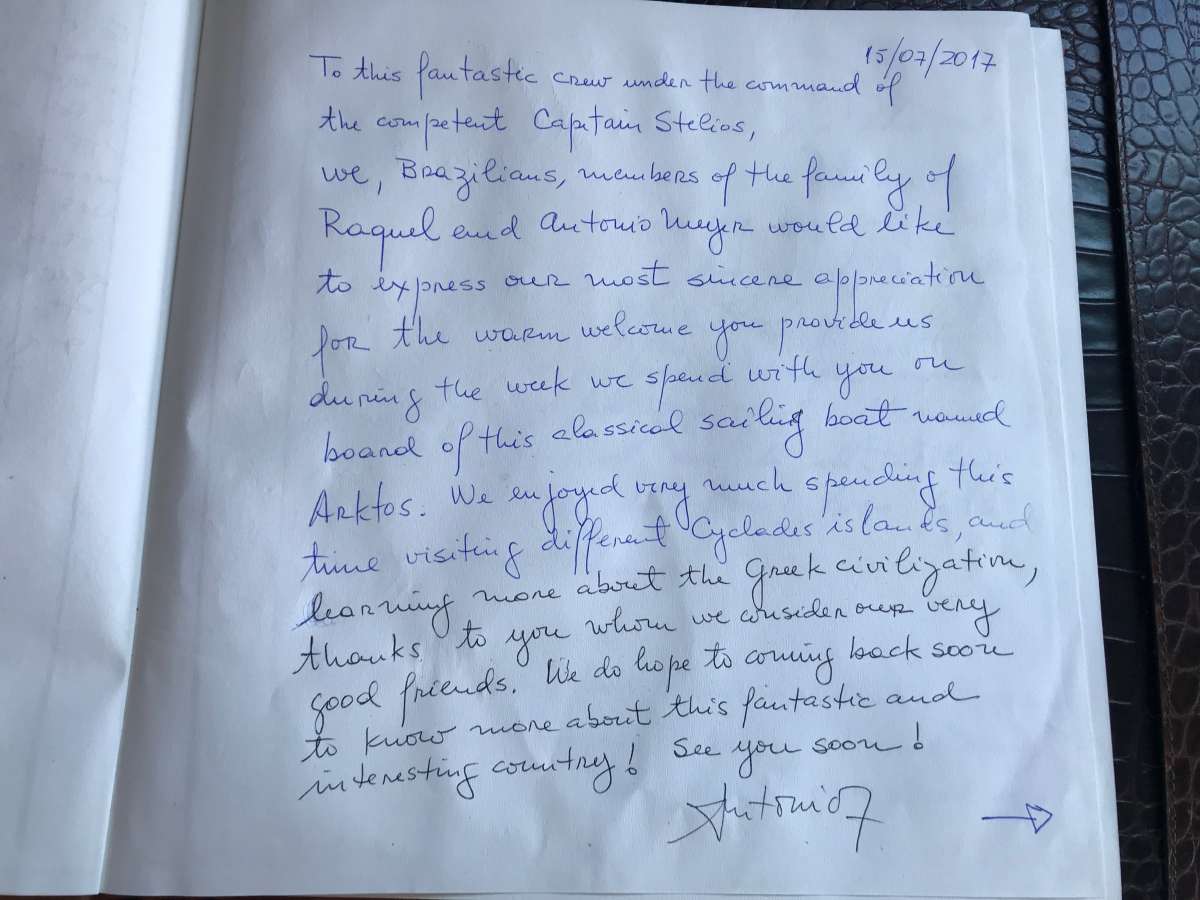 15/07/2017
To this fantastic crew under the command of
the competent Capitain Stelios,
we, Brazilians, members of the family of
Raquel and Antonio Meyer would like
to express our most sincere appreciation
for the warm welcome you provide us
during the week we spend with you on
board of this classical sailing boat named
Arktos. We enjoyed very much spending this
time visiting different Cyclades islands, and
learning more about the Greek civilization,
thanks to you whom we consider our very
good friends. We do hope to coming back soon
to know more about this fantastic and
interesting country! See you soon!
Antonio